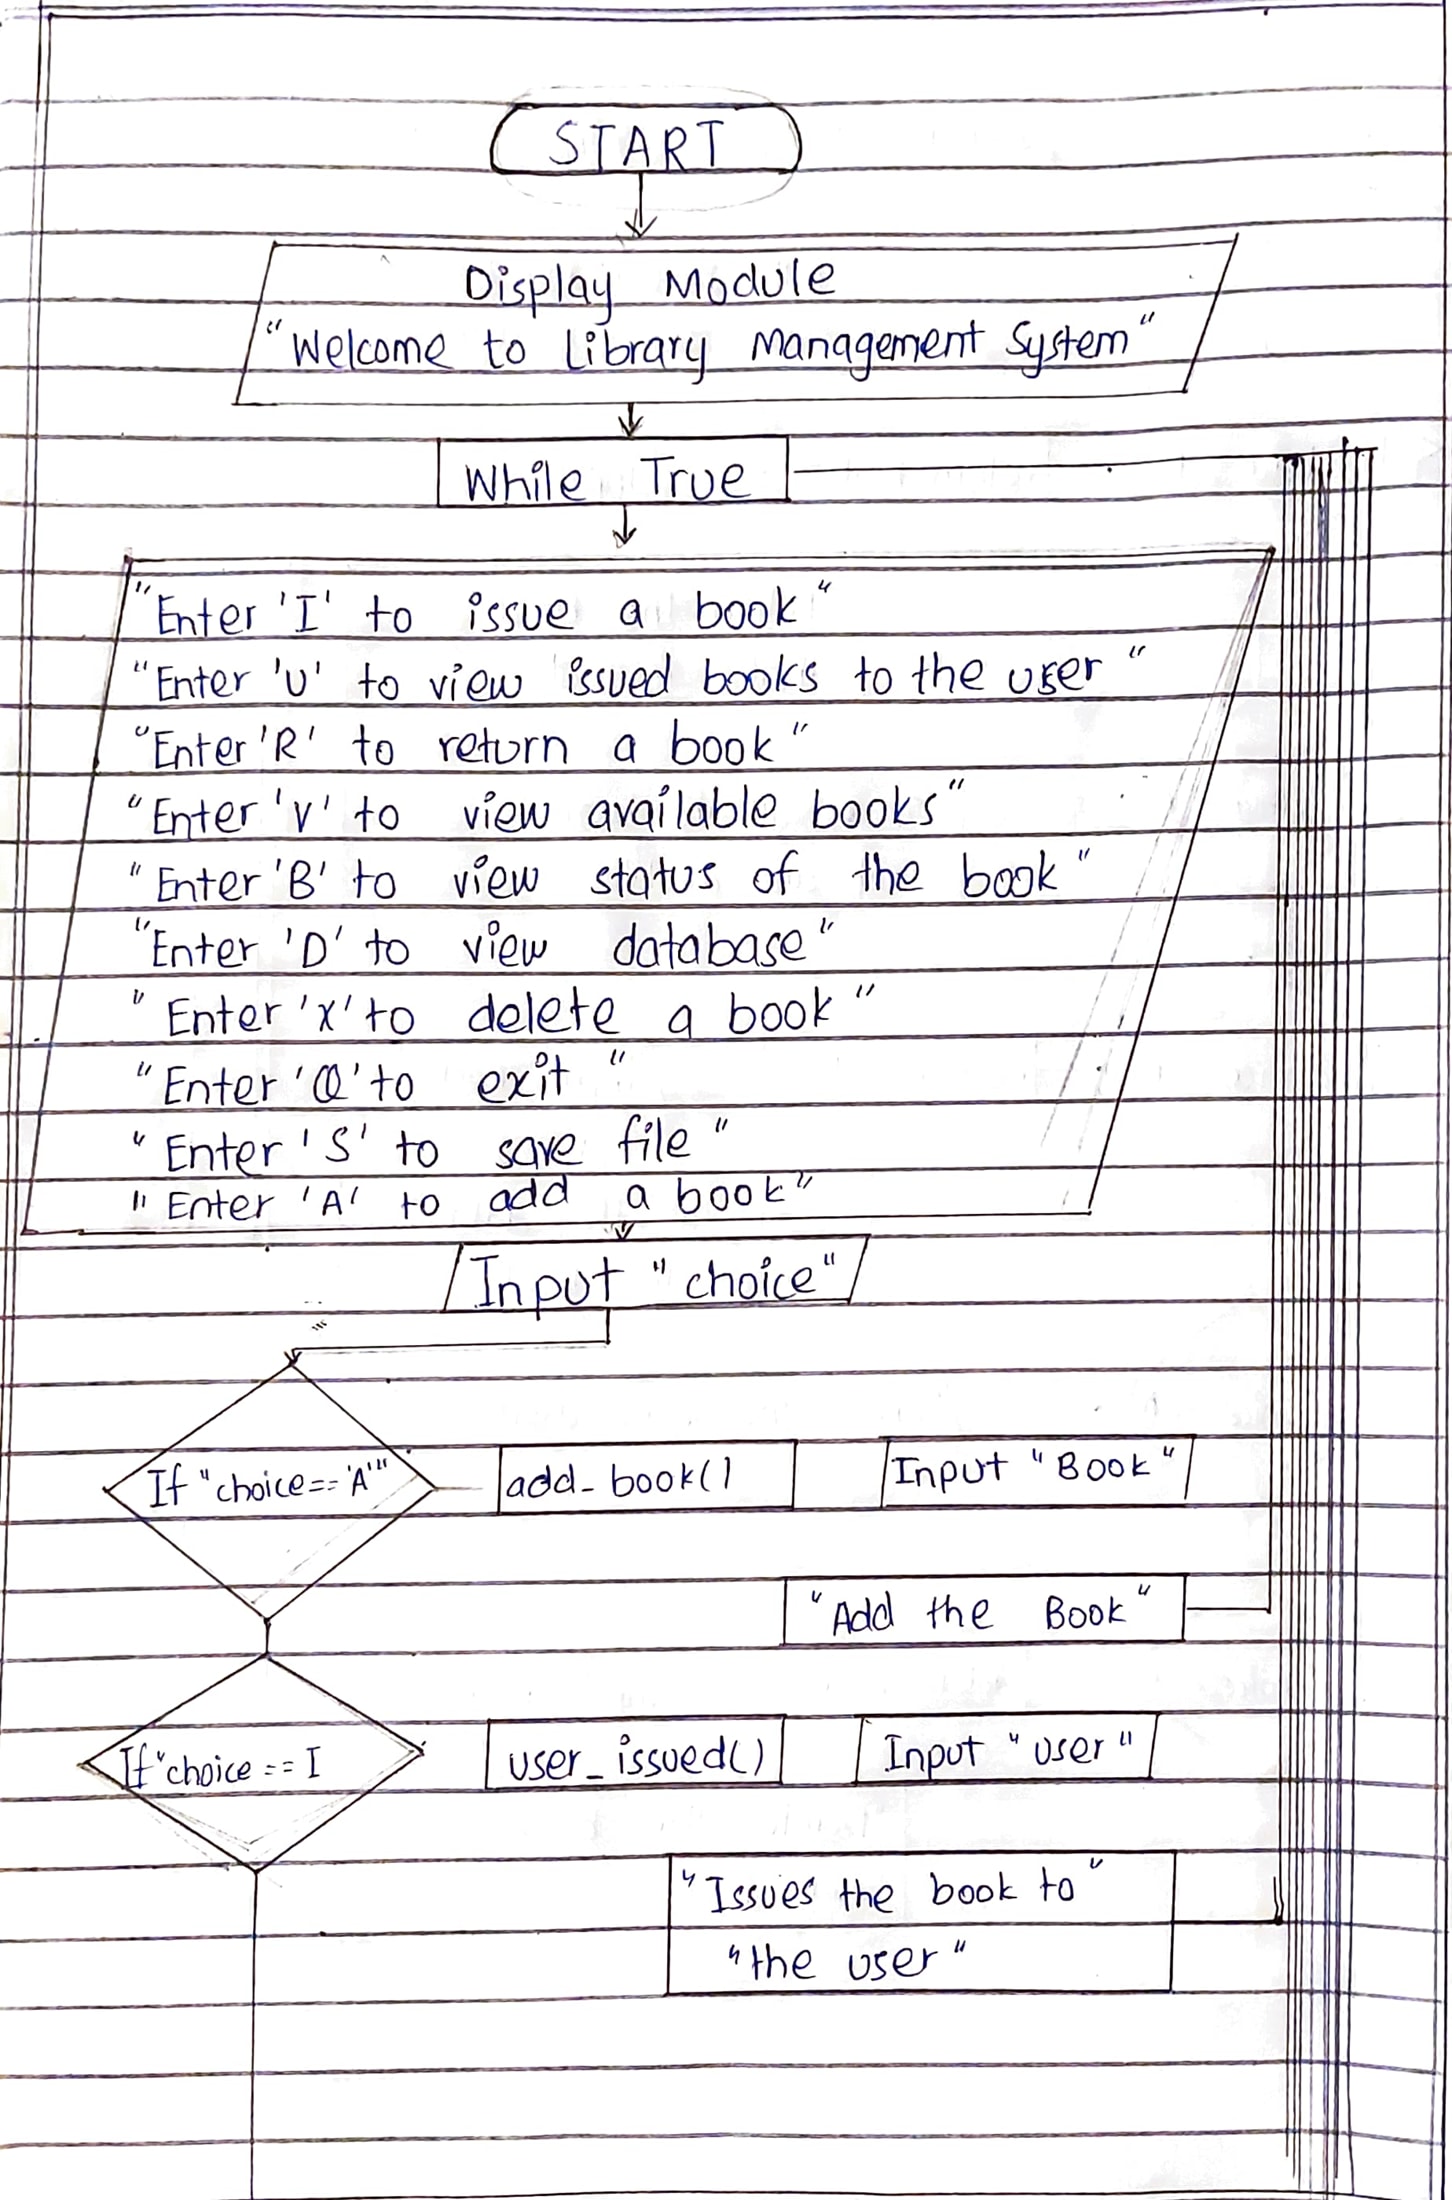 START
Display Module
"Welcome to Library Management System"
While True
"Enter 'I' to issue a book"
"Enter 'U' to view issued books to the user"
"Enter 'R' to return a book"
"Enter 'V' to view available books"
"Enter 'B' to view status of the book"
"Enter 'D' to view database"
"Enter 'X' to delete a book"
"Enter 'Q' to exit"
"Enter 'S' to save file"
"Enter 'A' to add a book"
Input "choice"
If "choice=='A'"
add_book()
Input "Book"
"Add the Book"
If "choice == I
user_issued()
Input "user"
"Issues the book to"
"the user"